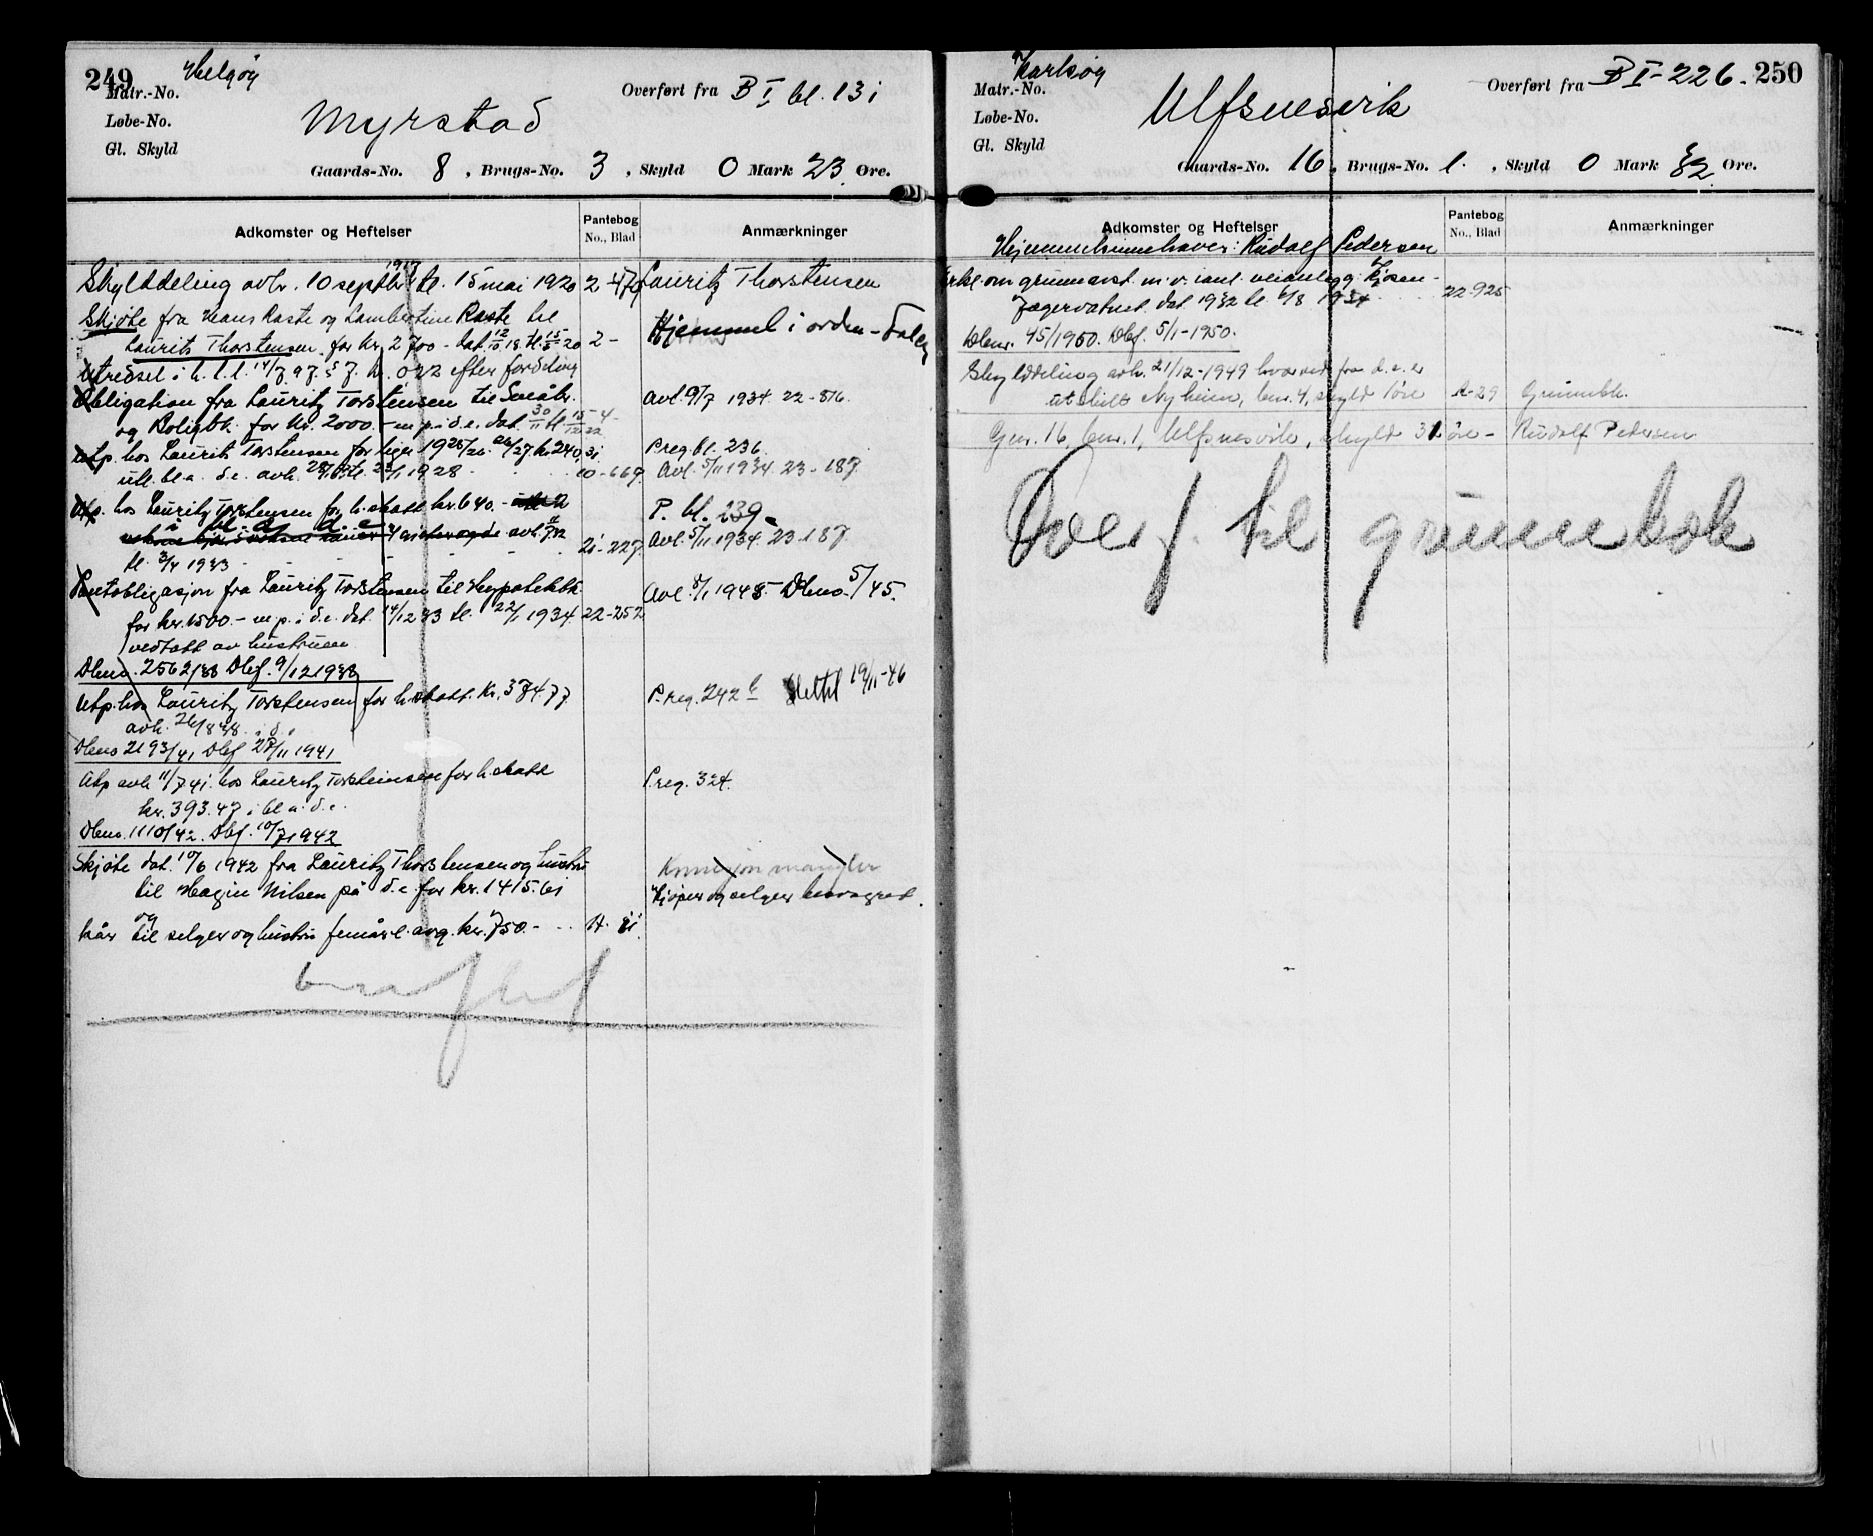 249
Helgøy
Matr.-No.
Løbe-No.
Gl. Skyld
Myrstad
Overført fra B I bl. 131
Gaards-No. 8, Brugs-No. 3, Skyld 0 Mark 23 Øre.
Adkomster og Heftelser
Pantebog No., Blad
Anmærkninger
Skylddeling avh. 10 septbr 1917 tl. 15 mai 1920 2-479 Lauritz Thorstensen
Skjøte fra Hans Raste og Lambertine Raste til
Laurits Thorstensen for kr. 2700 - dat. 12/10 18 tl. 15/5 20 2- Hjemmel i orden -
Utredsel i h. t. l. 14/7 97 § 7. kr. 0.22 efter fordeling
Obligation fra Lauritz Torstensen til Småbr.
og Boligbk. for kr. 2000.- m.p. i d.e. dat. 30/11 tl. 15/12 22 4-
Avl. 9/7 1934 22-816.
Utp. hos Laurits Torstensen for 1925/26 26/27 kr. 240,31
P.reg. bl. 236.
utl. bl. a. d.e. avh. tl. 1928 10-669.
Avl. 5/11 1934 23-187.
Utp. hos Lauritz Torstensen for h.skatt kr. 640.-
i bl. a. d. e.
P. bl. 239
tl. 3/4 1933 21-227.
Avl. 5/11 1934 23-187.
Pantobligasjon fra Lauritz Torstensen til Hypotekbk.
for kr. 1500.- m.p. i d.e. dat. 14/12 33 tl. 22/1 1934. 22-252
vedtatt av hustruen
Avl. 8/1 1945. Dbno. 5/45.
Dbno. 2562/38 Dbf. 9/12 1938
Utp. hos Lauritz Torstensen for h.skatt. kr. 374.77
avh. 26/8 38. i d.e.
P.reg. 242 b Slettet 19/11-46
Dbno 2193/41 Dbf 28/11 1941
Utp avh 11/7 41. hos Lauritz Torsteinsen for h.skatt
kr. 393.47 i bl a. d.e.
P.reg. 324.
Dbno. 1110/42. Dbf. 10/7 1942
Skjøte dat. 10/6 1942 fra Lauritz Thorstensen og hustru
til Hagin Nilsen på d.e. for kr. 1415.61
Konsesjon mangler
Kjøper og selger
og
kår til selger og hustru femårl. avg. kr. 750.-
250
Karlsøy
Matr.-No.
Løbe-No.
Gl. Skyld
Ulfsnesvik
Overført fra B I-226.
Gaards-No. 16, Brugs-No. 1., Skyld 0 Mark 32 Øre.
Adkomster og Heftelser
Pantebog No., Blad
Anmærkninger
Hjemmelsinnehaver: Rudolf Pedersen
Erkl. om grunnavst. m.v. i anl. veianlegg Kjosen -
Jægervatnet dat. 1932 tl. 6/8 1934 22-925
Dbnr. 45/1950. Dbf. 5/1-1950.
Skylddeling avh. 21/12-1949 hvorved fra d.e. er
utskilt Nyheim, bnr. 4, skyld 1 øre A-29 Grunnbk.
Gnr. 16, bnr. 1, Ulfsnesvik, skyld 31 øre - Rudolf Pedersen
Overf. til grunnbok